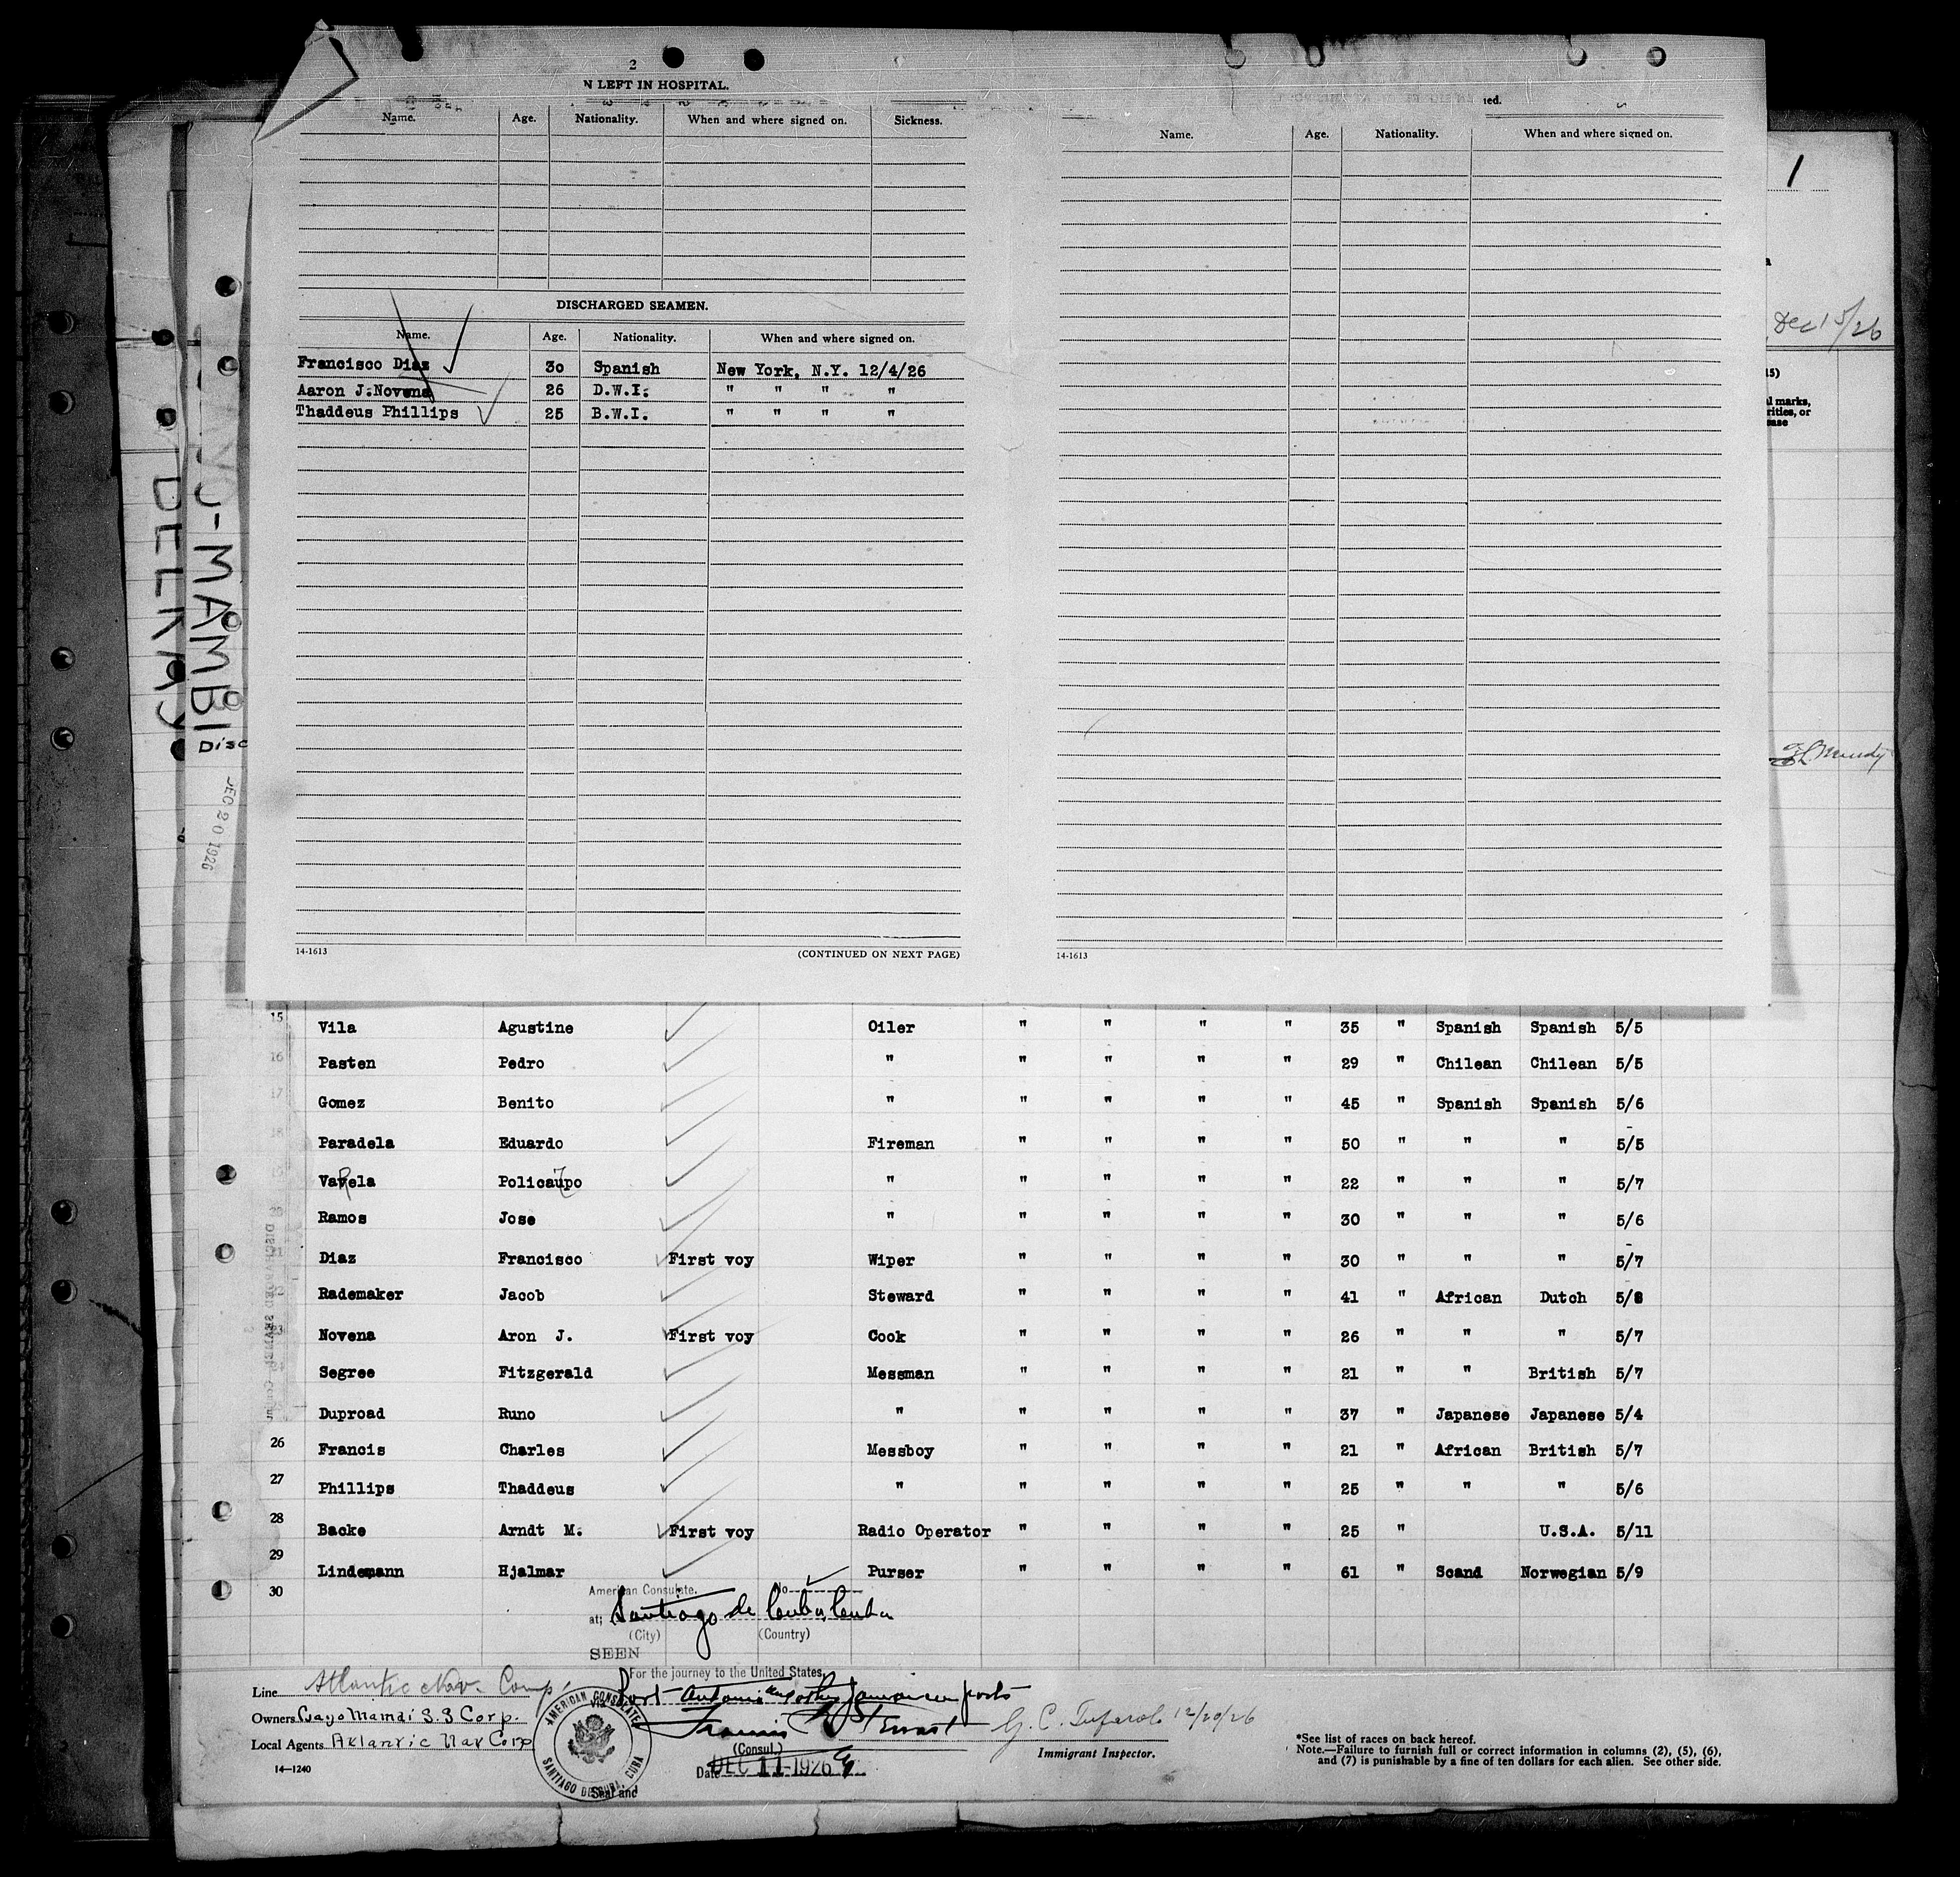 2
N LEFT IN HOSPITAL.
Name. Age. Nationality. When and where signed on. Sickness.
DISCHARGED SEAMEN.
Name. Age. Nationality. When and where signed on.
Francisco Diaz 30 Spanish New York, N.Y. 12/4/26
Aaron J.Novena 26 D.W.I. " " " "
Thaddeus Phillips 25 B.W.I. " " " "
14-1613 (CONTINUED ON NEXT PAGE)
ied.
Name. Age. Nationality. When and where signed on.
14-1613
1
Dec 15/26
15)
l marks,
rities, or
ease
DELRAY
O-MAMBI
Disc
DEC 20 1926
15 Vila Agustine Oiler " " " " 35 " Spanish Spanish 5/5
16 Pasten Pedro " " " " " 29 " Chilean Chilean 5/5
17 Gomez Benito " " " " " 45 " Spanish Spanish 5/6
18 Paradela Eduardo Fireman " " " " 50 " " " 5/5
Varela Policaupo " " " " " 22 " " " 5/7
Ramos Jose " " " " " 30 " " " 5/6
Diaz Francisco First voy Wiper " " " " 30 " " " 5/7
Rademaker Jacob Steward " " " " 41 " African Dutch 5/8
Novena Aron J. First voy Cook " " " " 26 " " " 5/7
Segree Fitzgerald Messman " " " " 21 " " British 5/7
Duproad Runo " " " " " 37 " Japanese Japanese 5/4
26 Francis Charles Messboy " " " " 21 " African British 5/7
27 Phillips Thaddeus " " " " " 25 " " " 5/6
28 Backe Arndt M. First voy Radio Operator " " " " 25 " U.S.A. 5/11
29 Lindemann Hjalmar Purser " " " " 61 " Scand Norwegian 5/9
30
American Consulate. No
at; Santiago de Cuba, Cuba
(City) (Country)
SEEN
For the journey to the United States,
via Port Antonio other Jamaican ports
Line Atlantic Nav. Comp.
Owners Cayo Mambi S.S Corp.
Local Agents Atlantic Nav Corp
14—1240
AMERICAN CONSULATE
SANTIAGO DE CUBA, CUBA
(Consul)
Date DEC 11 1926
Seal and
12/20/26
Immigrant Inspector.
*See list of races on back hereof.
Note.—Failure to furnish full or correct information in columns (2), (5), (6),
and (7) is punishable by a fine of ten dollars for each alien. See other side.